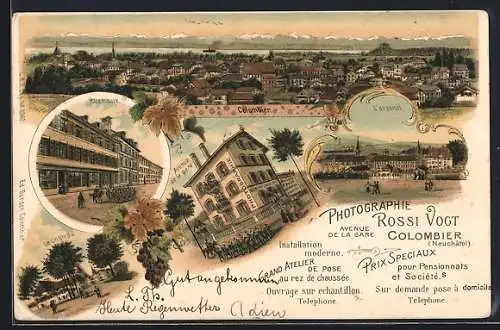 Colombier
L'arsenal
PHOTOGRAPHIE
ROSSI VOGT
AVENUE
DE LA GARE
COLOMBIER
(Neuchâtel).
Installation
moderne.
GRAND ATELIER
DE POSE
au rez de chaussée
Ouvrage sur echantillon.
Telephone.
PRIX SPECIAUX
pour Pensionnats
et Société.s
Sur demande pose à domicile
Telephone.
Gut angekommen
L. Th.
Heute Regenwetter
Adieu